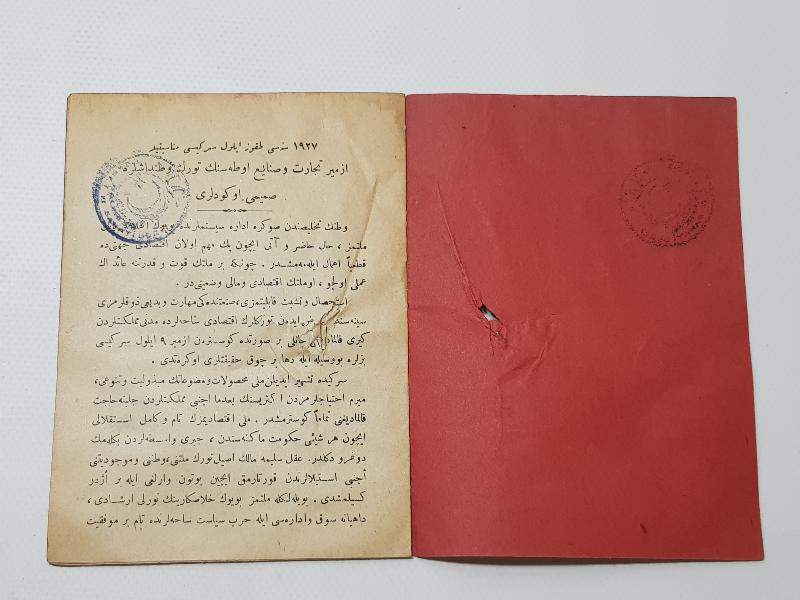 ١٩٢٧ سنه‌سی طقوز ایلول سرگیسی مناسبتیله
ازمیر تجارت و صنایع اوطه‌سنك تورك وطنداشلره
صمیمی اوکودلری
وطنك تخلیصندن صوکره اداره سیستملرنده بویوك
ملتمز ، حال حاضر و آتی ایچون پك مهم اولان اقتصادی جهتی ده
قطعیاً اهمال ایله‌مه‌مشدر . چونکه بر ملتك قوت و قدرتنه عائد اك
عملی اولچو ، او ملتك اقتصادی ومالی وضعیتی در .
استحصال و تشبث قابلیتمزی ، صنعتده‌کی مهارت و بدیعی ذوقلرمزی
سینه‌سنده عرض ایدن تورکلرك اقتصادی ساحه‌لرده مدنی مملکتلردن
کیری قالمادیغنی جانلی بر صورتده کوسترن ازمیر ٩ ایلول سرکیسی
بزلره بووسیله ایله دها بر چوق حقیقتلری اوکره‌تدی .
سرکیده تشهیر ایدیلن ملی محصولات و مصنوعاتك مبذولیت و تنوعی ،
مبرم احتیاجلرمزدن اکثریسنك بعدما اجنبی مملکتلردن جلبنه حاجت
قالمادیغنی تماماً کوسترمشدر . ملی اقتصادیمزك تام و کامل استقلالی
ایچون هر شیئی حکومت ماکنه‌سندن ، جبری واسطه‌لردن بکله‌مك
دوغرو دکلدر . عقل سلیمه مالك اصیل تورك ملتی ، وطنی و موجودیتنی
أجنبی استیلالرندن قورتارمق ایچین بوتون وارلغی ایله بر اژدر
کسیلمشدی . بویله‌لکله ملتمز بویوك خلاصکارینك نورلی ارشادی ،
داهیانه سوق و اداره‌سی ایله حرب سیاست ساحه‌لرنده تام بر موفقیت